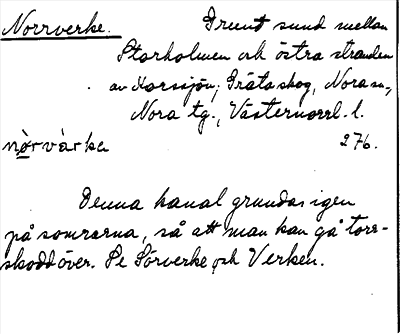 Norrverke. Grunt sund mellan
Storholmen och östra stranden
av Horssjön, Gräta skog, Nora sn.,
Nora tg., Västernorrl. l.
nòrvàrka 276.
Denna kanal grundas igen
på somrarna, så att man kan gå torr-
skodd över. Se Sörverke och Verken.